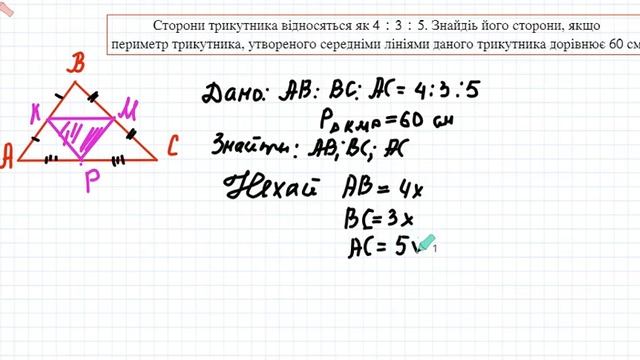 Сторони трикутника відносяться як 4 : 3 : 5. Знайдіь його сторони, якщо
периметр трикутника, утвореного середніми лініями даного трикутника дорівнює 60 см
Дано: AB : BC : AC = 4 : 3 : 5
P△KMP = 60 см
Знайти: AB; BC; AC
Нехай AB = 4x
BC = 3x
AC = 5x
B
K M
A C
P